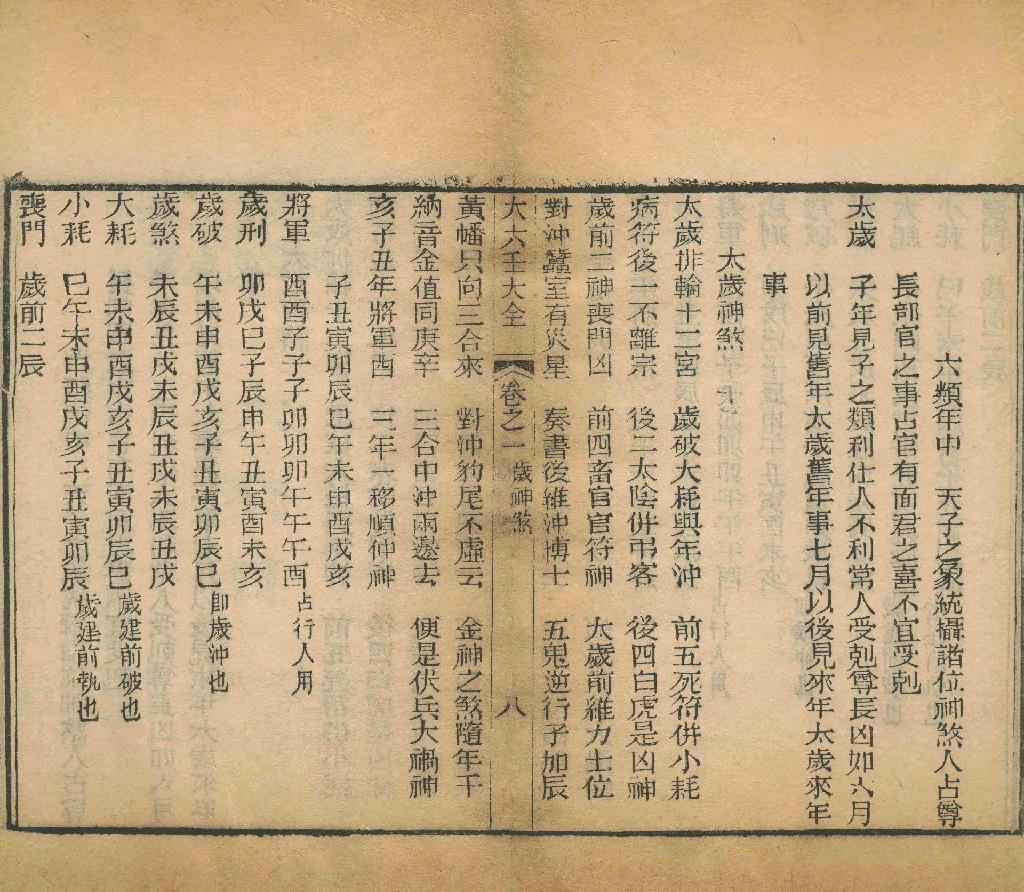 六類年中 天子之象統攝諸位神煞人占尊
長部官之事占官有面君之喜不宜受剋
太歲 子年見子之類利仕人不利常人受剋尊長凶如六月
以前見舊年太歲舊年事七月以後見來年太歲來年
事
太歲神煞
太歲排輪十二宮 歲破大耗與年沖 前五死符併小耗
病符後一不離宗 後二太陰併弔客 後四白虎是凶神
歲前二神喪門凶 前四畜官官符神 太歲前維力士位
對沖蠶室有災星 奏書後維沖博士 五鬼逆行子加辰
大六壬大全 卷之一 歲神煞 八
黃幡只向三合來 對沖豹尾不虛云 金神之煞隨年干
納音金值同庚辛 三合中沖兩邊去 便是伏兵大禍神
亥子丑年將軍酉 三年一移順仲神
子丑寅卯辰巳午未申酉戌亥
將軍 酉酉子子子卯卯卯午午午酉 占行人用
歲刑 卯戌巳子辰申午丑寅酉未亥
歲破 午未申酉戌亥子丑寅卯辰巳 即歲沖也
歲煞 未辰丑戌未辰丑戌未辰丑戌
大耗 午未申酉戌亥子丑寅卯辰巳 歲建前破也
小耗 巳午未申酉戌亥子丑寅卯辰 歲建前執也
喪門 歲前二辰